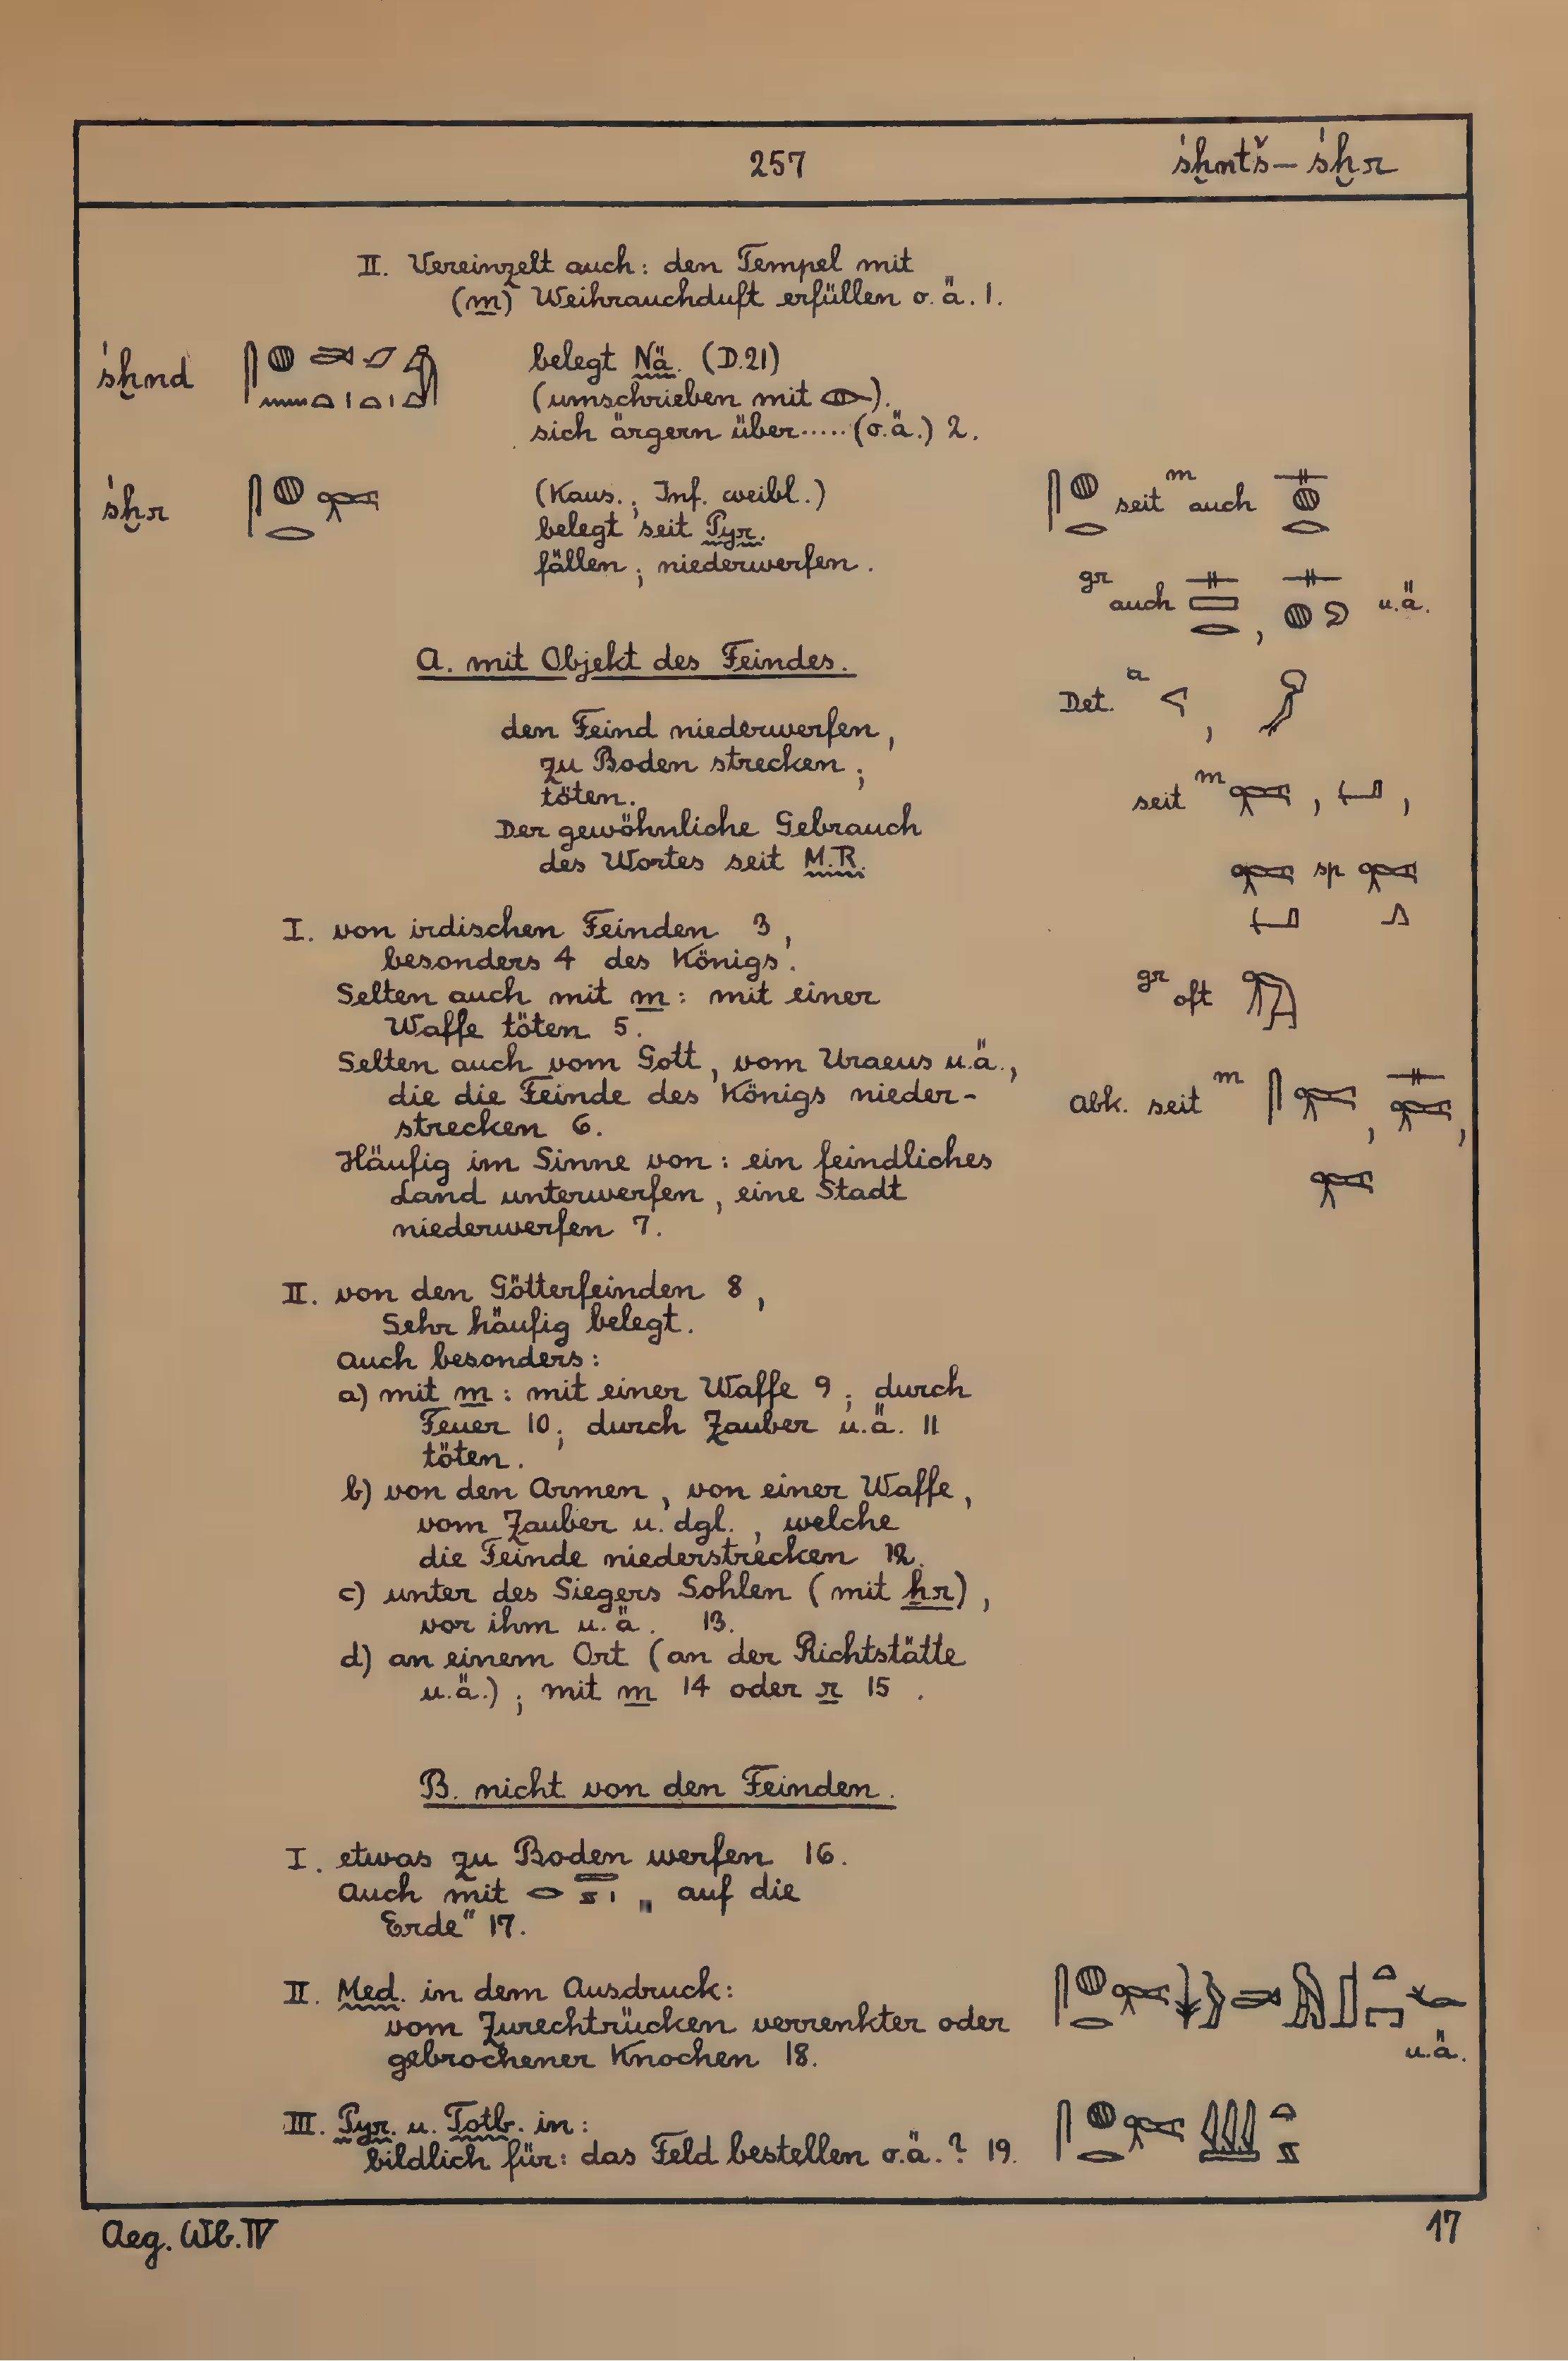 257
śḫntš – śḫr
II. Vereinzelt auch: den Tempel mit
(m) Weihrauchduft erfüllen o.ä. 1.
śḫnd
belegt Nä. (D.21)
(umschrieben mit 𓁹).
sich ärgern über..... (o.ä.) 2.
śḫr
(Kaus.; Inf. weibl.)
belegt seit Pyr.
fällen; niederwerfen.
seit m auch
gr auch , u.ä.
A. mit Objekt des Feindes.
Det. a ,
den Feind niederwerfen,
zu Boden strecken;
töten.
seit m , ,
Der gewöhnliche Gebrauch
des Wortes seit M.R.
sp
I. von irdischen Feinden 3,
besonders 4 des Königs.
Selten auch mit m: mit einer
Waffe töten 5.
gr oft
Selten auch vom Gott, vom Uraeus u.ä.,
die die Feinde des Königs nieder-
strecken 6.
Abk. seit m , ,
Häufig im Sinne von: ein feindliches
Land unterwerfen, eine Stadt
niederwerfen 7.
II. von den Götterfeinden 8,
Sehr häufig belegt.
Auch besonders:
a) mit m: mit einer Waffe 9; durch
Feuer 10; durch Zauber u.ä. 11
töten.
b) von den Armen, von einer Waffe,
vom Zauber u. dgl., welche
die Feinde niederstrecken 12.
c) unter des Siegers Sohlen (mit ẖr),
vor ihm u.ä. 13.
d) an einem Ort (an der Richtstätte
u.ä.); mit m 14 oder r 15.
B. nicht von den Feinden.
I. etwas zu Boden werfen 16.
Auch mit „auf die
Erde" 17.
II. Med. in dem Ausdruck:
vom Zurechtrücken verrenkter oder
gebrochener Knochen 18.
u.ä.
III. Pyr. u. Totb. in:
bildlich für: das Feld bestellen o.ä.? 19.
Aeg. Wb. IV
17